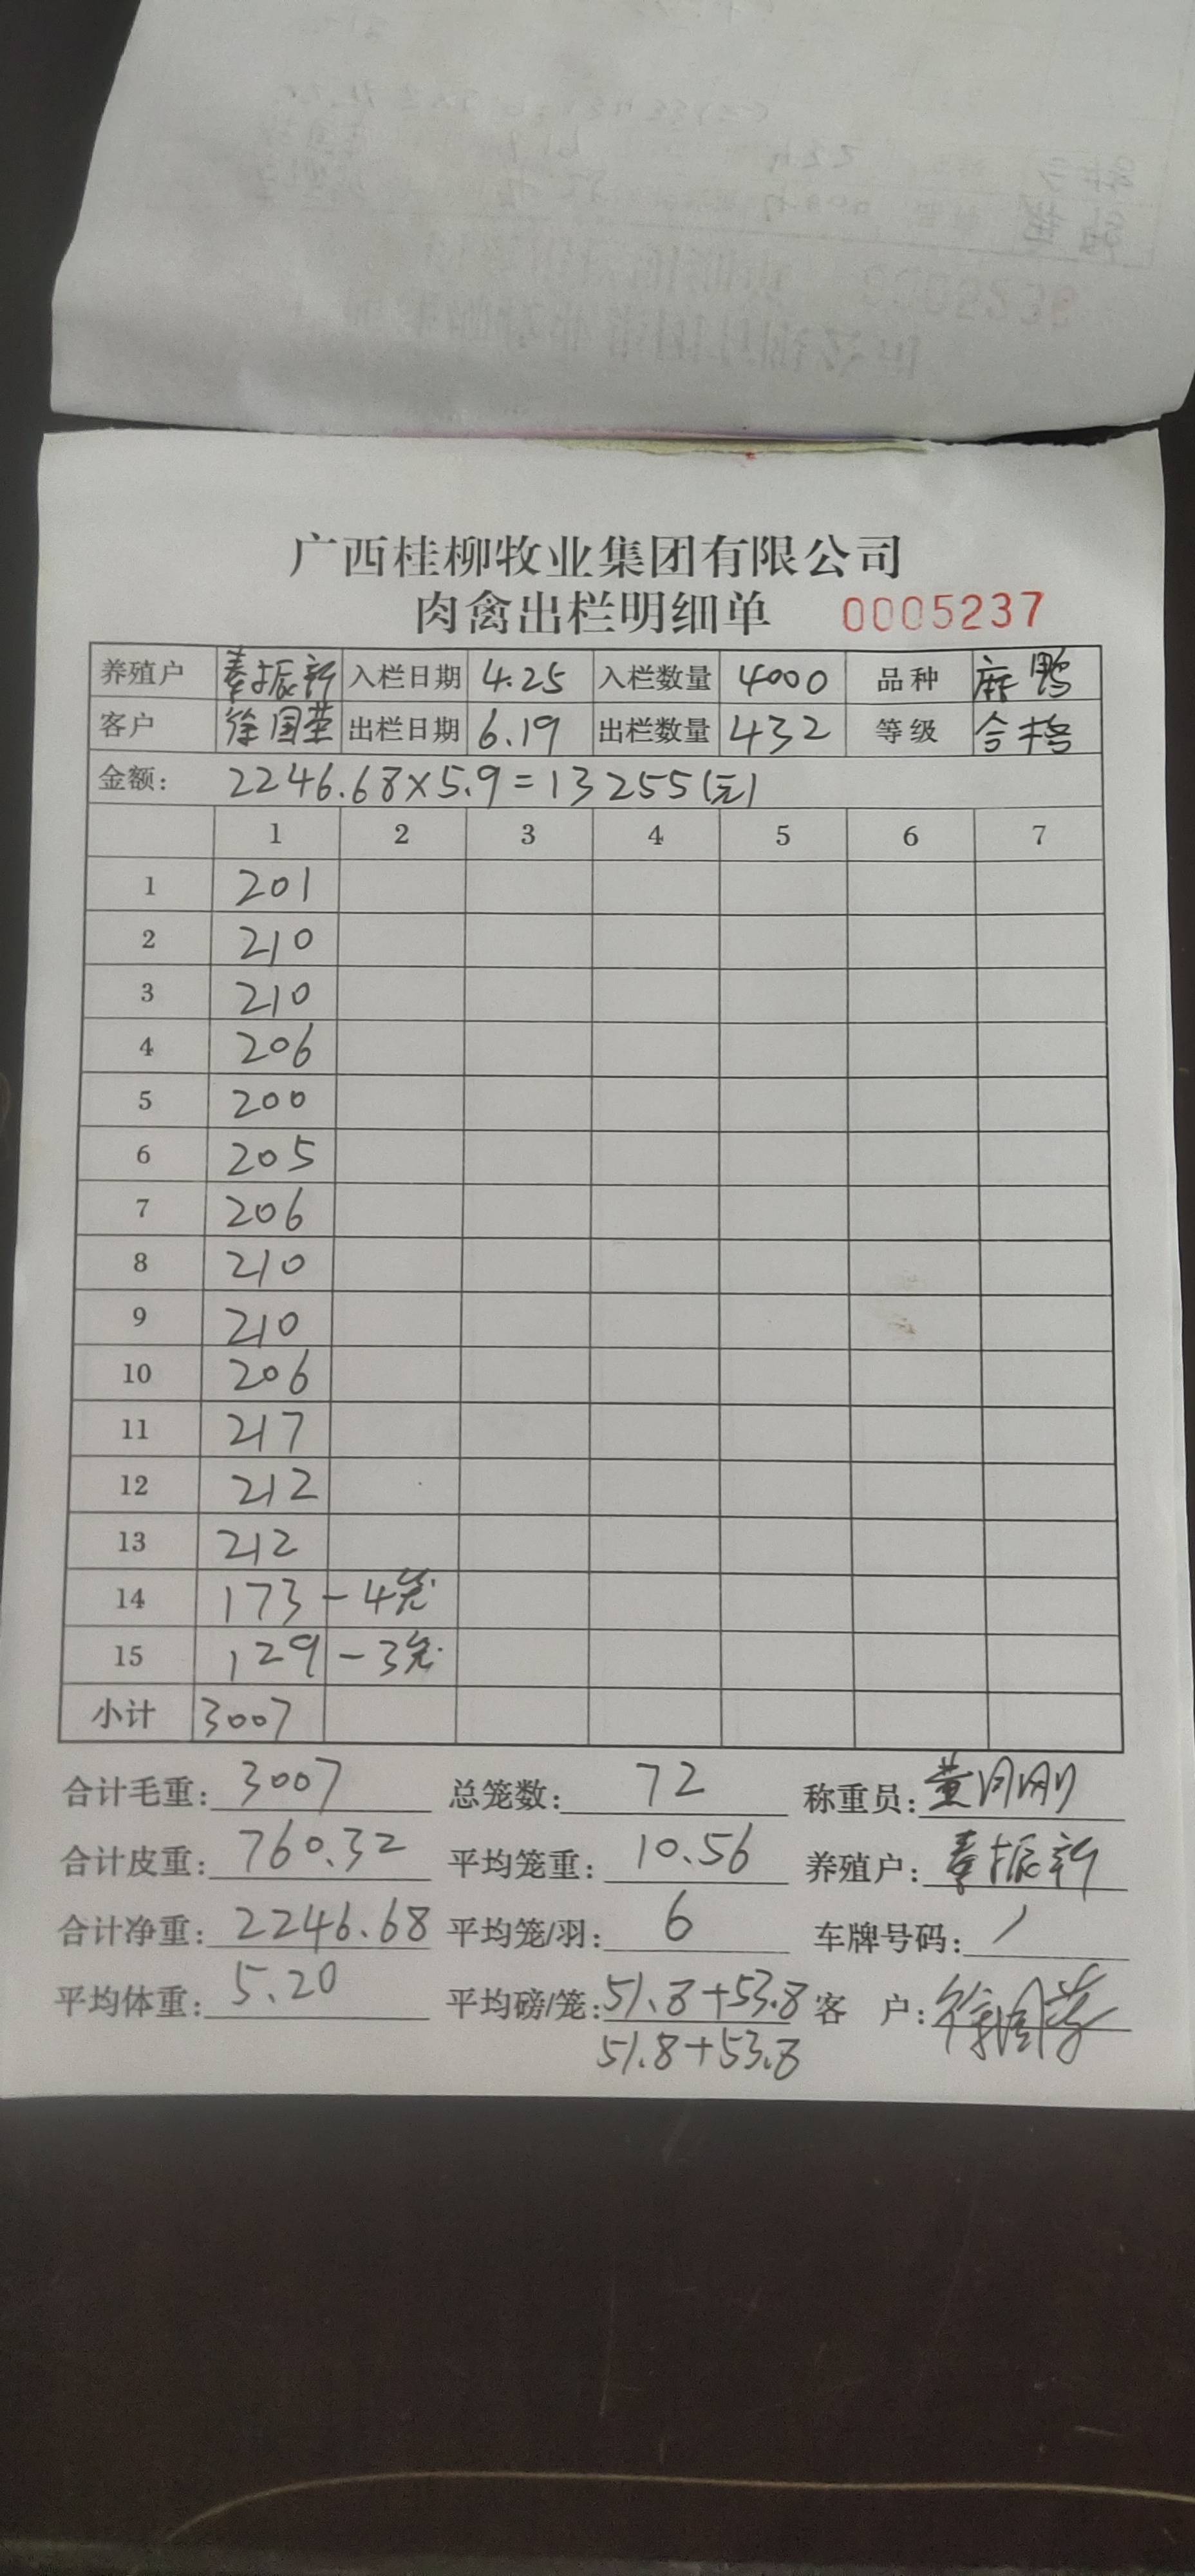 广西桂柳牧业集团有限公司
肉禽出栏明细单 0005237
养殖户 秦振新 入栏日期 4.25 入栏数量 4000 品种 麻鸭
客户 徐国荣 出栏日期 6.19 出栏数量 432 等级 合格
金额: 2246.68×5.9=13255(元)
1 2 3 4 5 6 7
1 201
2 210
3 210
4 206
5 200
6 205
7 206
8 210
9 210
10 206
11 217
12 212
13 212
14 173 -4笼
15 129 -3笼
小计 3007
合计毛重: 3007 总笼数: 72 称重员: 黄
合计皮重: 760.32 平均笼重: 10.56 养殖户: 秦振新
合计净重: 2246.68 平均笼/羽: 6 车牌号码: /
平均体重: 5.20 平均磅/笼: 51.8+53.8 客 户: 徐国荣
51.8+53.8